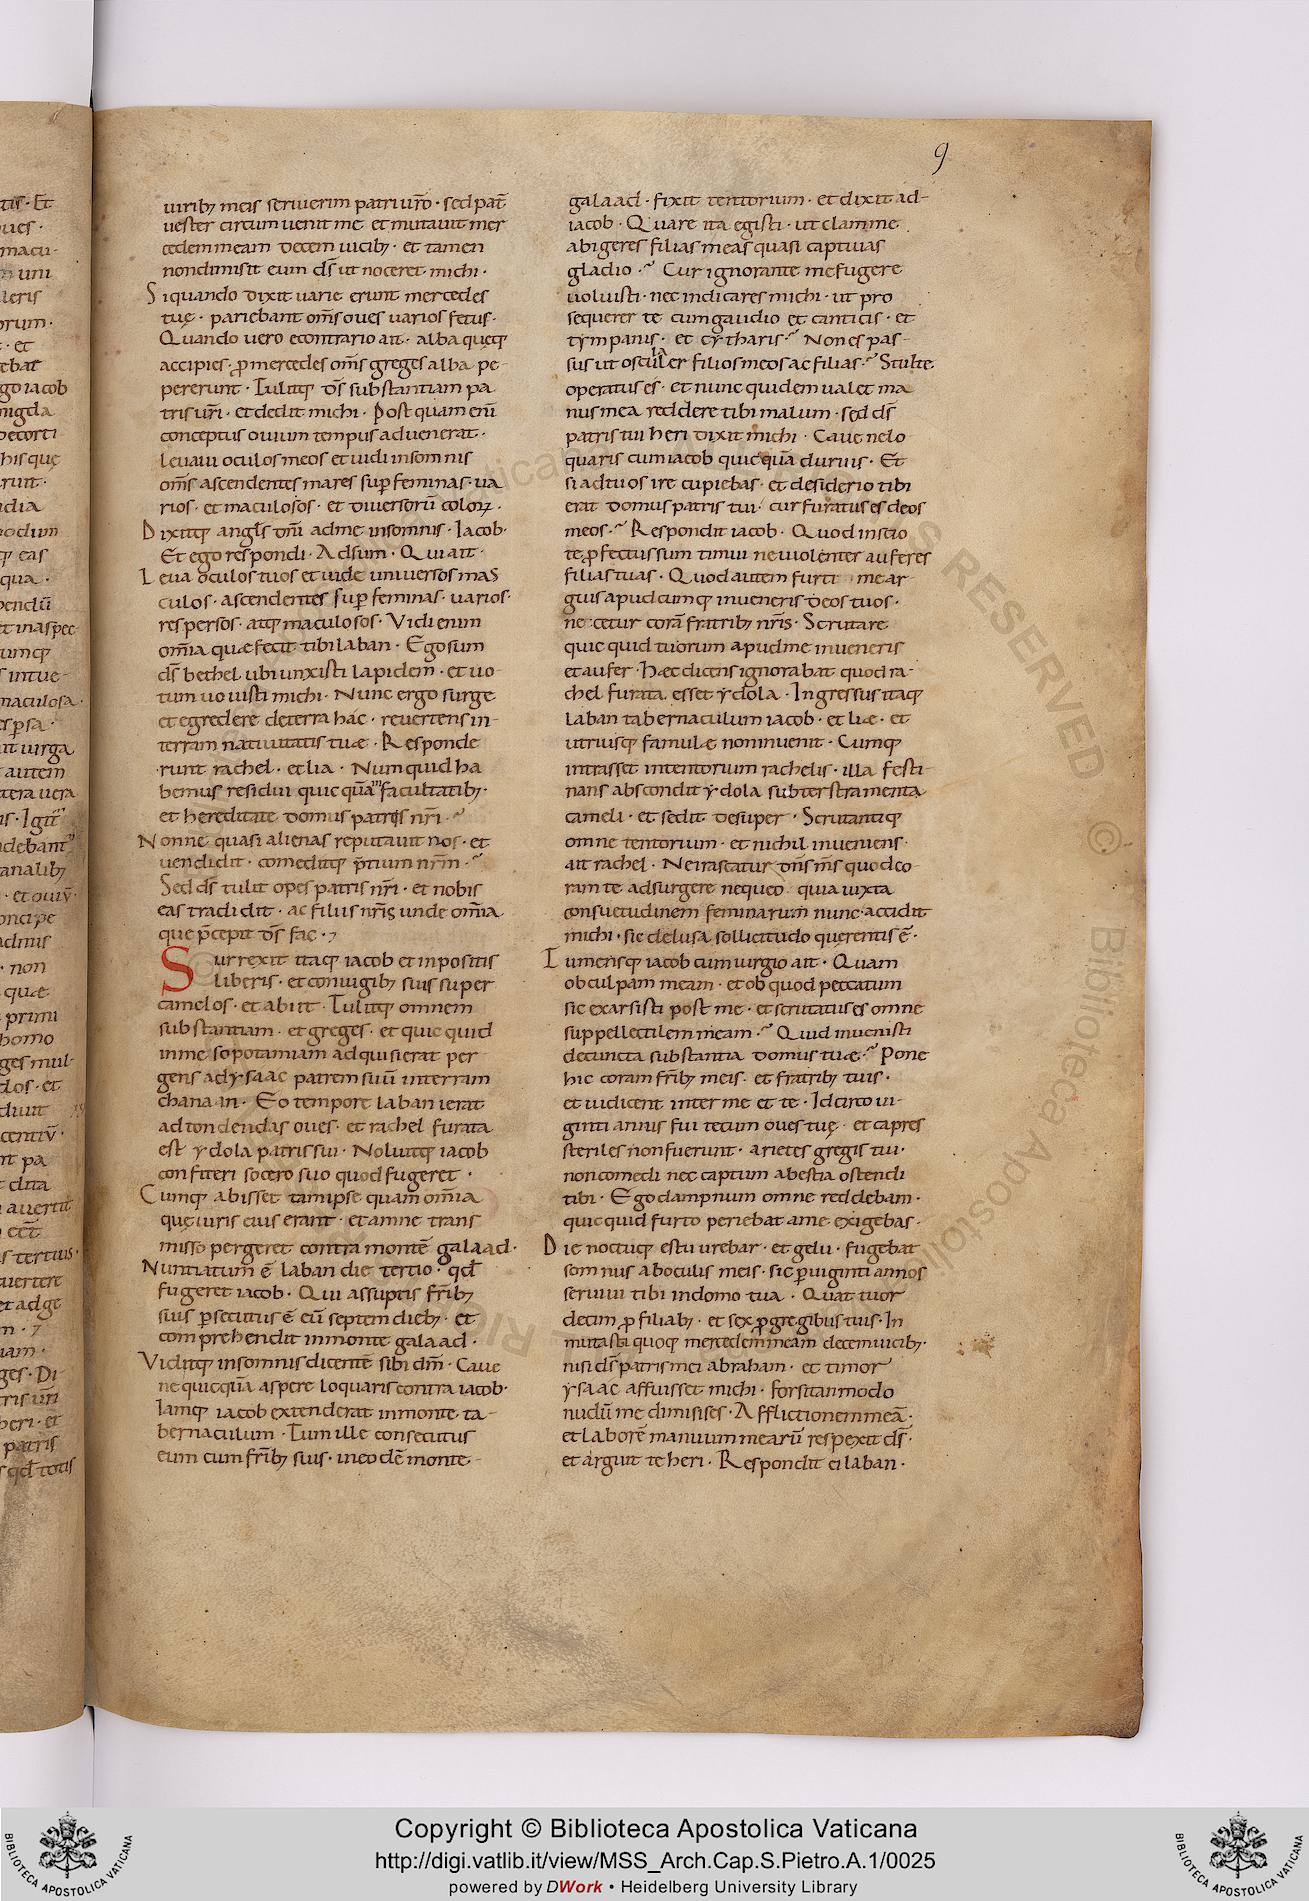 9
uirib; meis seruierim patri ur̄o · sed pat̄
uester circum uenit me et mutauit mer
cedem meam decem uicib; · et tamen
non dimisit eum d̄s ut noceret michi ·
Si quando dixit uarie erunt mercedes
tuę · pariebant om̄s oues uarios fetus ·
Quando uero econtrario ait · alba quęq;
accipies · ꝓ mercede om̄s greges alba pe-
pererunt · Tulitq; d̄s substantiam pa
tris ur̄i · et dedit michi · Post quam en̄
conceptus ouium tempus aduenerat ·
leuaui oculos meos et uidi in somnis
om̄s ascendentes mares sup̄ feminas · ua
rios · et maculosos · et diuersorū coloꝝ ·
Dixitq; angl̄s dn̄i ad me in somnis · Iacob ·
Et ego respondi · Adsum · Qui ait ·
Leua oculos tuos et uide uniuersos mas
culos · ascendentes sup̄ feminas · uarios ·
respersos · atq; maculosos · Vidi enim
om̄ia quæ fecit tibi laban · Ego sum
d̄s bethel ubi unxisti lapidem · et uo-
tum uouisti michi · Nunc ergo surge
et egredere de terra hac · reuertens in-
terram natiuitatis tuæ · Responde
runt rachel · et lia · Numquid ha
bemus residui quicquā in facultatib;
et hereditate domus patris nr̄i ·
Nonne quasi alienas reputauit nos · et
uendidit · comeditq; p̄tium nr̄m ·
Sed d̄s tulit opes patris nr̄i · et nobis
eas tradidit · ac filiis nr̄is unde om̄ia
que p̄cepit d̄s fac ·
Surrexit itaq; iacob et inpositis
liberis · et coniugib; suis super
camelos · et abiit · Tulitq; omnem
substantiam · et greges · et quic quid
in mesopotamiam adquisierat per
gens ad ysaac patrem suū in terram
chanaan · Eo tempore laban ierat
ad tondendas oues · et rachel furata
est ydola patris sui · Noluitq; iacob
confiteri socero suo quod fugeret ·
Cumq; abisset tam ipse quam om̄ia
quę iuris eius erant · et amne trans
misso pergeret contra montē galaad ·
Nuntiatum ē laban die tertio · qd̄
fugeret iacob · Qui assuptis fr̄ib;
suis p̄secutus ē eū septem dieb; · et
comprehendit in monte galaad ·
Viditq; in somnis dicentē sibi dm̄ · Caue
ne quicquā aspere loquaris contra iacob ·
Iamq; iacob extenderat in monte ta-
bernaculum · Tum ille consecutus
eum cum fr̄ib; suis · in eodē monte
galaad · fixit tentorium · et dixit ad-
iacob · Quare ita egisti · ut clam me
abigeres filias meas quasi captiuas
gladio · Cur ignorante me fugere
uoluisti · nec indicares michi · ut pro
sequerer te cum gaudio et canticis · et
tympanis · et cytharis · Non es pas-
sus ut oscularer filios meos ac filias · Stulte
operatus es · et nunc quidem ualet ma
nus mea reddere tibi malum · sed d̄s
patris tui heri dixit michi · Caue ne lo
quaris cum iacob quicquā durius · Et
si ad tuos ire cupiebas · et desiderio tibi
erat domus patris tui · cur furatus es deos
meos · Respondit iacob · Quod inscio
te ꝓfectus sum timui ne uiolenter auferes
filias tuas · Quod autem furti me ar
guis apud cumq; inueneris deos tuos ·
necetur corā fratrib; nr̄is · Scrutare
quic quid tuorum apud me inueneris
et aufer · Hæc dicens ignorabat quod ra-
chel furata esset ydola · Ingressus itaq;
laban tabernaculum iacob · et liæ · et
utriusq; famulæ non inuenit · Cumq;
intrasset in tentorium rachelis · illa festi-
nans abscondit ydola subter stramenta
cameli · et sedit desuper · Scrutantiq;
omne tentorium · et nichil inueniens ·
ait rachel · Ne irascatur dn̄s m̄s quod co
ram te adsurgere nequeo · quia iuxta
consuetudinem feminarum nunc accidit
michi · sic delusa sollicitudo querentis ē ·
Tumensq; iacob cum iurgio ait · Quam
ob culpam meam · et ob quod peccatum
sic exarsisti post me · et scrutatus es omne
suppellectilem meam · Quid inuenisti
de cuncta substantia domus tuæ · Pone
hic coram fr̄ib; meis · et fratrib; tuis ·
et iudicent inter me et te · Idcirco ui-
ginti annis fui tecum oues tuę · et capres
steriles non fuerunt · arietes gregis tui ·
non comedi nec captum a bestia ostendi
tibi · Ego dampnum omne reddebam ·
quic quid furto periebat a me exigebas ·
Die noctuq; estu urebar · et gelu · fugebat
somnus ab oculis meis · sic p̄ uiginti annos
seruiui tibi in domo tua · Quattuor
decim ꝓ filiab; · et sex ꝓ gregibus tuis · In
mutasti quoq; mercedem meam decem uicib; ·
nisi d̄s patris mei abraham · et timor
ysaac affuisset michi · forsitan modo
nudū me dimisises · Afflictionem meā ·
et laborē manuum mearū respexit d̄s ·
et arguit te heri · Respondit ei laban ·
Copyright © Biblioteca Apostolica Vaticana
http://digi.vatlib.it/view/MSS_Arch.Cap.S.Pietro.A.1/0025
powered by DWork • Heidelberg University Library
BIBLIOTECA APOSTOLICA VATICANA
BIBLIOTECA APOSTOLICA VATICANA